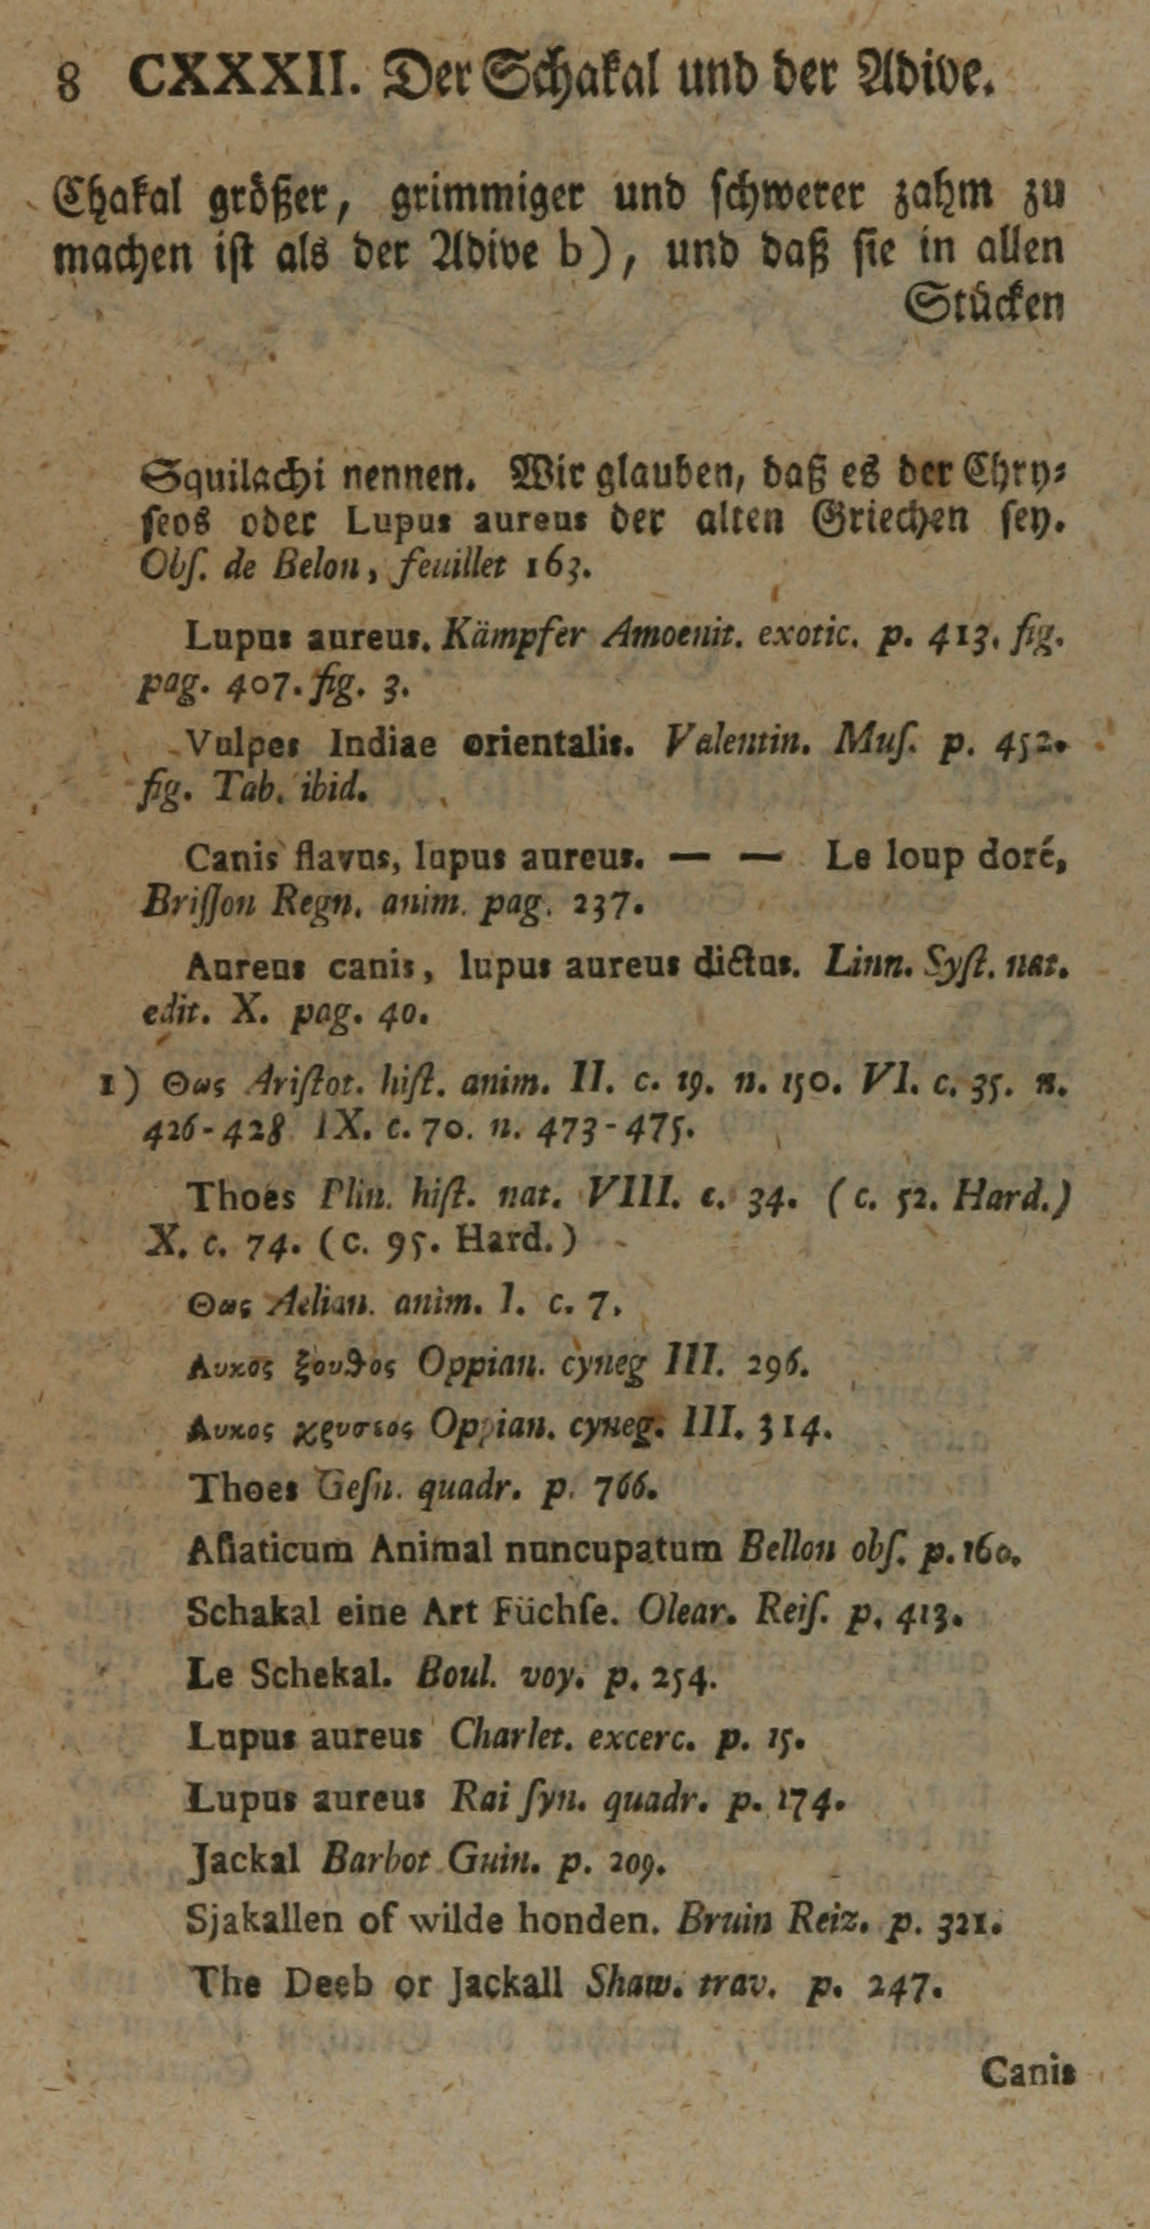 8 CXXXII. Der Schakal und der Adive.
Chakal größer, grimmiger und schwerer zahm zu
machen ist als der Adive b), und daß sie in allen
Stücken
Squilachi nennen. Wir glauben, daß es der Chry⸗
seos oder Lupus aureus der alten Griechen sey.
Obſ. de Belon, feuillet 163.
Lupus aureus. Kämpfer Amoenit. exotic. p. 413. fig.
pag. 407. fig. 3.
Vulpes Indiae orientalis. Valentin. Muſ. p. 452.
fig. Tab. ibid.
Canis flavus, lupus aureus. — — Le loup doré,
Briſſon Regn. anim. pag. 237.
Aureus canis, lupus aureus dictus. Linn. Syſt. nat.
edit. X. pag. 40.
1) Θως Ariſtot. hiſt. anim. II. c. 19. n. 150. VI. c. 35. n.
426-428 IX. c. 70. n. 473-475.
Thoes Plin. hiſt. nat. VIII. c. 34. (c. 52. Hard.)
X. c. 74. (c. 95. Hard.)
Θως Aelian. anim. I. c. 7.
Λυκος ξουθος Oppian. cyneg III. 296.
Λυκος χρυσεος Oppian. cyneg. III. 314.
Thoes Geſn. quadr. p. 766.
Aſiaticum Animal nuncupatum Bellon obſ. p. 160.
Schakal eine Art Füchſe. Olear. Reiſ. p. 413.
Le Schekal. Boul. voy. p. 254.
Lupus aureus Charlet. excerc. p. 15.
Lupus aureus Rai ſyn. quadr. p. 174.
Jackal Barbot Guin. p. 209.
Sjakallen of wilde honden. Bruin Reiz. p. 321.
The Deeb or Jackall Shaw. trav. p. 247.
Canis